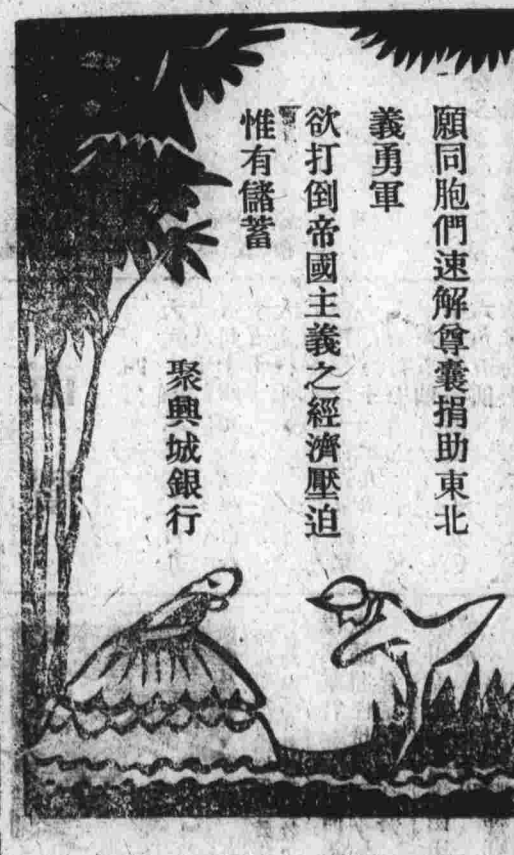 願同胞們速解尊囊捐助東北
義勇軍
欲打倒帝國主義之經濟壓迫
惟有儲蓄
聚興城銀行